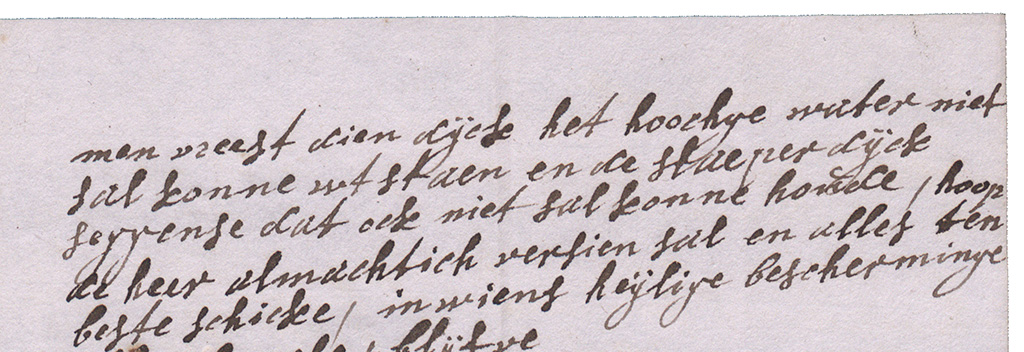 men vreest dien dijck het hoochge water niet
sal konne wtstaen en de slaeperdijck
seggense dat ock niet sal konne houde, hoop
de heer almachtich versien sal en alles ten
beste schicke, in wiens heijlige bescherminge
blijfve